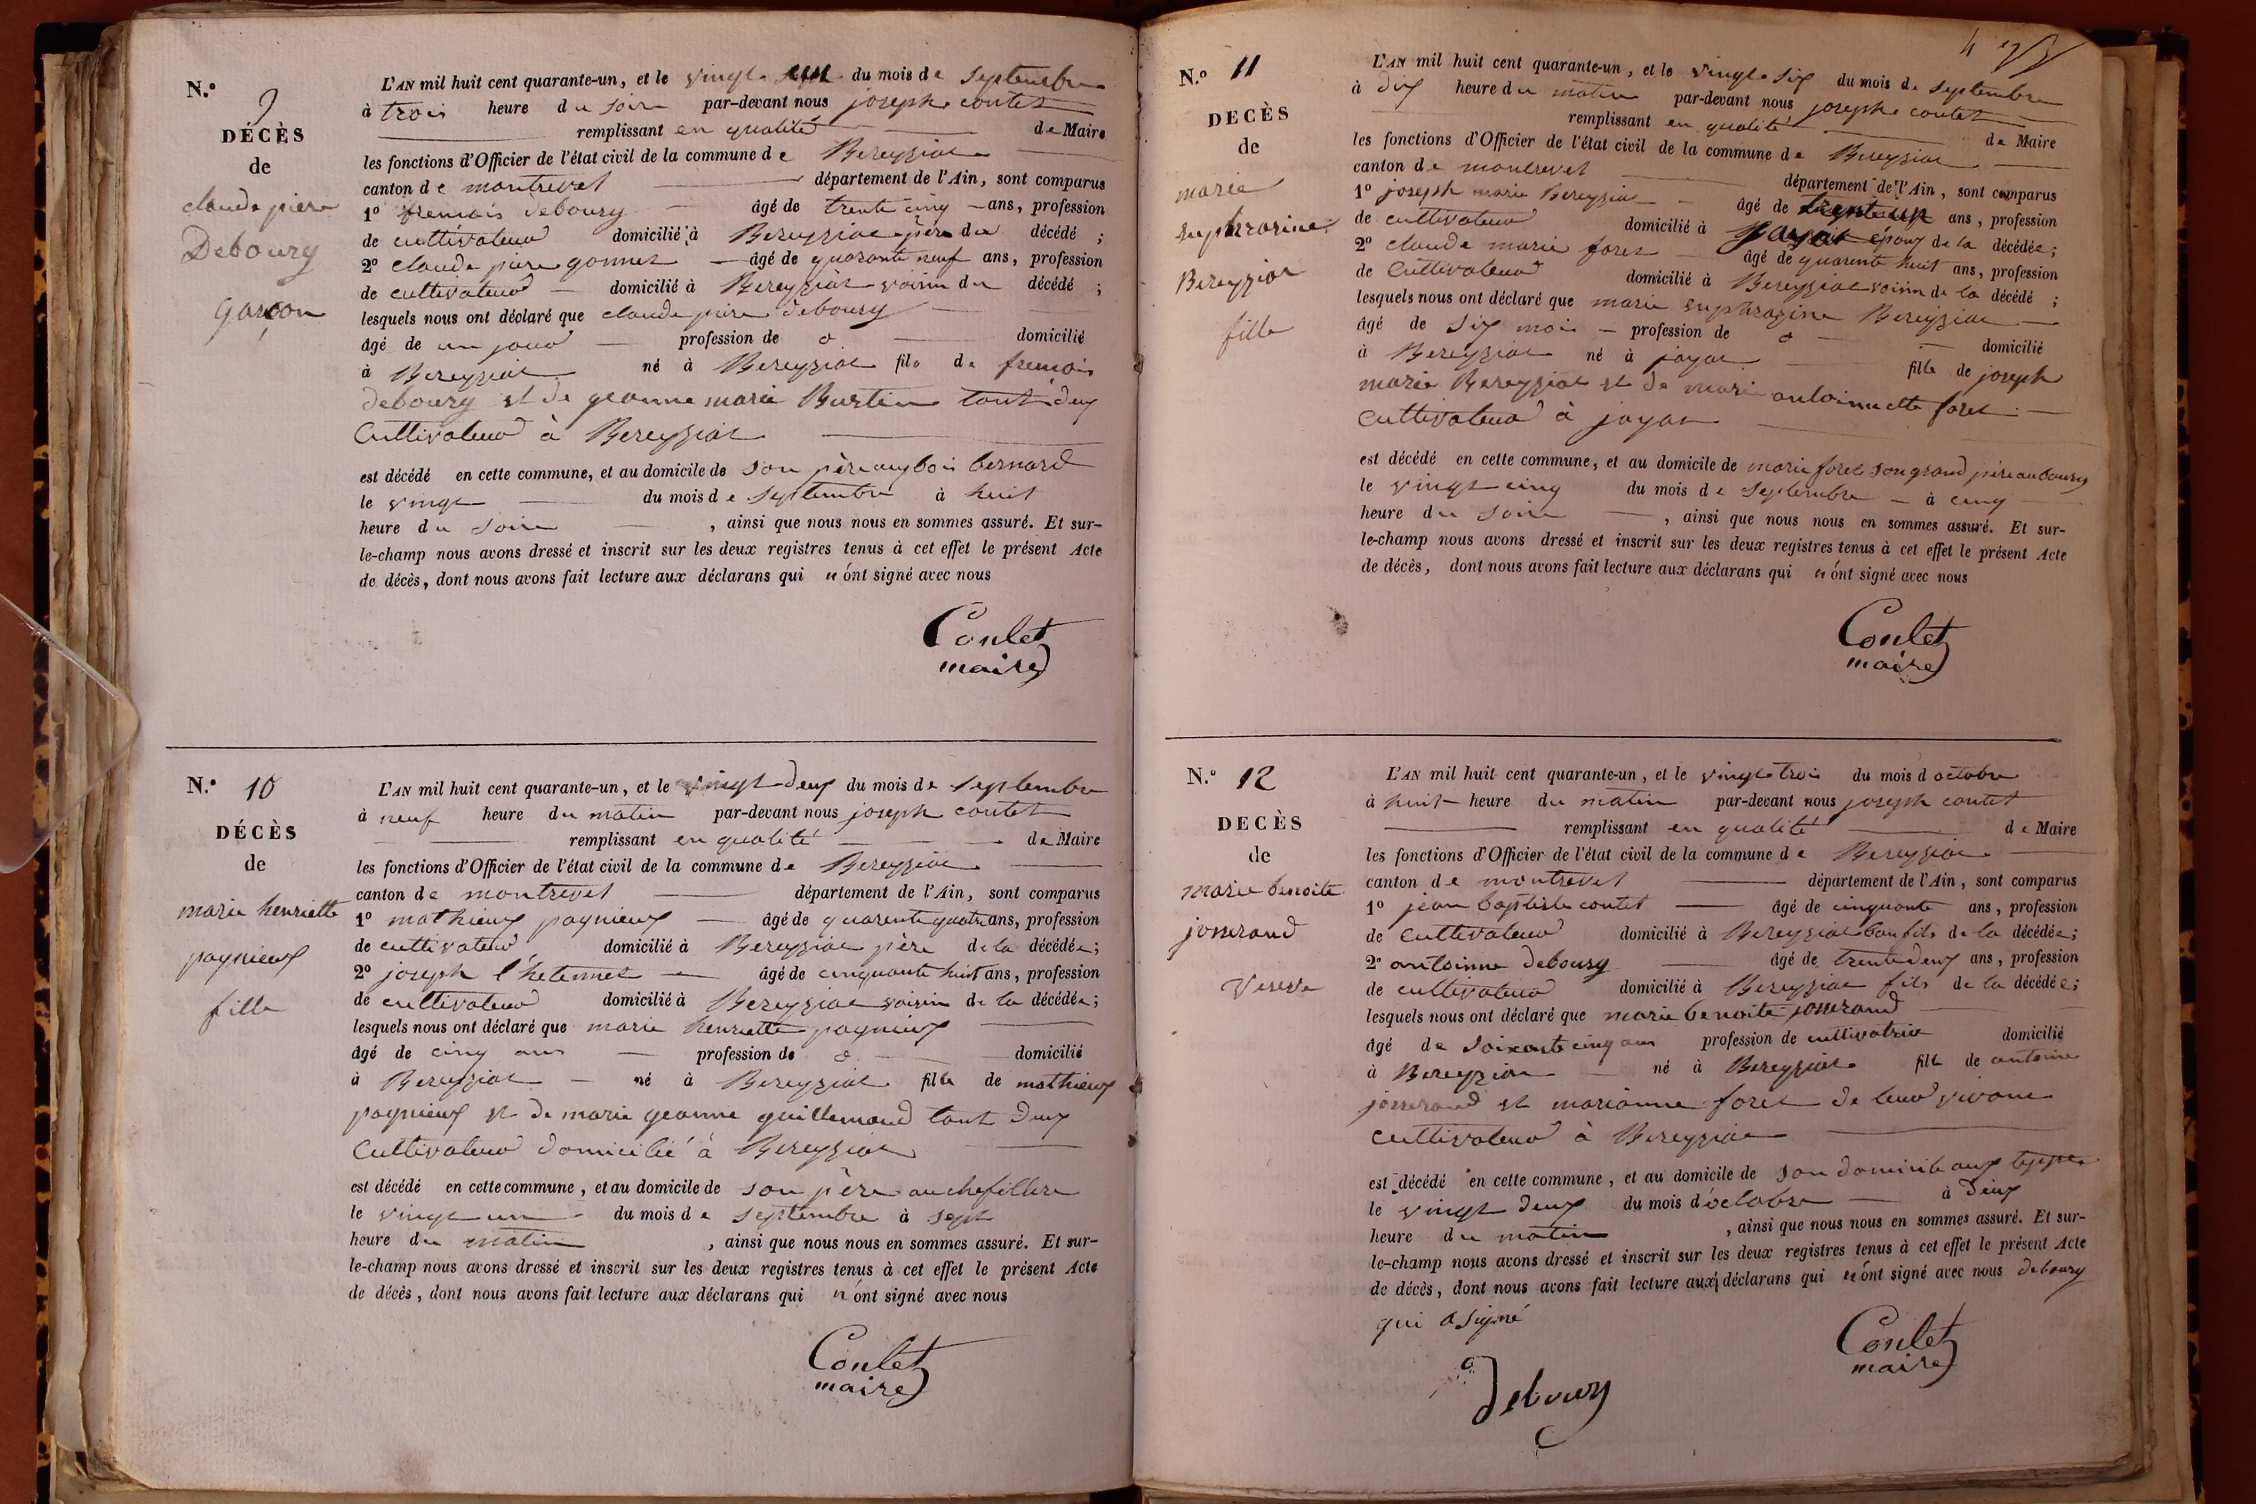 N.º 9
DÉCÈS
de
claude piere
Debourg
garcon
L'AN mil huit cent quarante-un, et le vingt un du mois de septembre
à trois heure du soir par-devant nous joseph coutet
remplissant en qualité de Maire
les fonctions d'Officier de l'état civil de la commune de Bereyziat
canton de montrevel département de l'Ain, sont comparus
1º fremois debourg âgé de trente cinq ans, profession
de cultivateur domicilié à Bereyziat père du décédé ;
2º claude piere gonnet âgé de quarante neuf ans, profession
de cultivateur domicilié à Bereyziat voisin du décédé ;
lesquels nous ont déclaré que claude piere debourg
âgé de un jour profession de o domicilié
à Bereyziat né à Bereyziat fils de fremois
debourg et de jeanne marie Burtin tout deux
cultivateur à Bereyziat
est décédé en cette commune, et au domicile de son père au bois bernard
le vingt du mois de septembre à huit
heure du soir , ainsi que nous nous en sommes assuré. Et sur-
le-champ nous avons dressé et inscrit sur les deux registres tenus à cet effet le présent Acte
de décès, dont nous avons fait lecture aux déclarans qui n'ont signé avec nous
Coutet
maire
N.º 10
DÉCÈS
de
marie henriette
pagnieux
fille
L'AN mil huit cent quarante-un, et le vingt deux du mois de septembre
à neuf heure du matin par-devant nous joseph coutet
remplissant en qualité de Maire
les fonctions d'Officier de l'état civil de la commune de Bereyziat
canton de montrevel département de l'Ain, sont comparus
1º mathieux pagnieux âgé de quarente quatre ans, profession
de cultivateur domicilié à Bereyziat père de la décédée ;
2º joseph l'hetennet âgé de cinquante huit ans, profession
de cultivateur domicilié à Bereyziat voisin de la décédée ;
lesquels nous ont déclaré que marie henriette pagnieux
âgé de cinq ans profession de o domicilié
à Bereyziat né à Bereyziat fille de mathieux
pagnieux et de marie jeanne guillemaud tout deux
cultivateur domicilié à Bereyziat
est décédé en cette commune, et au domicile de son père au chefillire
le vingt un du mois de septembre à sept
heure du matin , ainsi que nous nous en sommes assuré. Et sur-
le-champ nous avons dressé et inscrit sur les deux registres tenus à cet effet le présent Acte
de décès, dont nous avons fait lecture aux déclarans qui n'ont signé avec nous
Coutet
maire
4
N.º 11
DECÈS
de
marie
euphrasine
Bereyziat
fille
L'AN mil huit cent quarante-un, et le vingt six du mois de septembre
à dix heure du matin par-devant nous joseph coutet
remplissant en qualité de Maire
les fonctions d'Officier de l'état civil de la commune de Bereyziat
canton de montrevel département de l'Ain, sont comparus
1º joseph marie Bereyziat âgé de trente un ans, profession
de cultivateur domicilié à jayat époux de la décédée ;
2º claude marie foret âgé de quarente huit ans, profession
de cultivateur domicilié à Bereyziat voisin de la décédé ;
lesquels nous ont déclaré que marie euphrazine Bereyziat
âgé de six mois profession de o domicilié
à Bereyziat né à jayat fille de joseph
marie Bereyziat et de marie antoinnette foret
cultivateur à jayat
est décédé en cette commune, et au domicile de marie foret son grand père au bourg
le vingt cinq du mois de septembre à cinq
heure du soir , ainsi que nous nous en sommes assuré. Et sur-
le-champ nous avons dressé et inscrit sur les deux registres tenus à cet effet le présent Acte
de décès, dont nous avons fait lecture aux déclarans qui n'ont signé avec nous
Coutet
maire
N.º 12
DECÈS
de
marie benoite
joserand
Veseve
L'AN mil huit cent quarante-un, et le vingt trois du mois d octobre
à huit heure du matin par-devant nous joseph coutet
remplissant en qualité de Maire
les fonctions d'Officier de l'état civil de la commune de Bereyziat
canton de montrevel département de l'Ain, sont comparus
1º jean baptiste coutet âgé de cinquante ans, profession
de cultivateur domicilié à Bereyziat baufils de la décédée ;
2º antoinne debourg âgé de trente deux ans, profession
de cultivateur domicilié à Bereyziat fils de la décédée ;
lesquels nous ont déclaré que marie benoite joserand
âgé de soixante cinq ans profession de cultivatrice domicilié
à Bereyziat né à Bereyziat fille de antoine
joserand et marianne foret de leur vivant
cultivateur à Bereyziat
est décédé en cette commune, et au domicile de son domicile aux
le vingt deux du mois d'octobre à deux
heure du matin , ainsi que nous nous en sommes assuré. Et sur-
le-champ nous avons dressé et inscrit sur les deux registres tenus à cet effet le présent Acte
de décès, dont nous avons fait lecture aux déclarans qui n'ont signé avec nous debourg
qui a signé
Coutet
maire
debourg